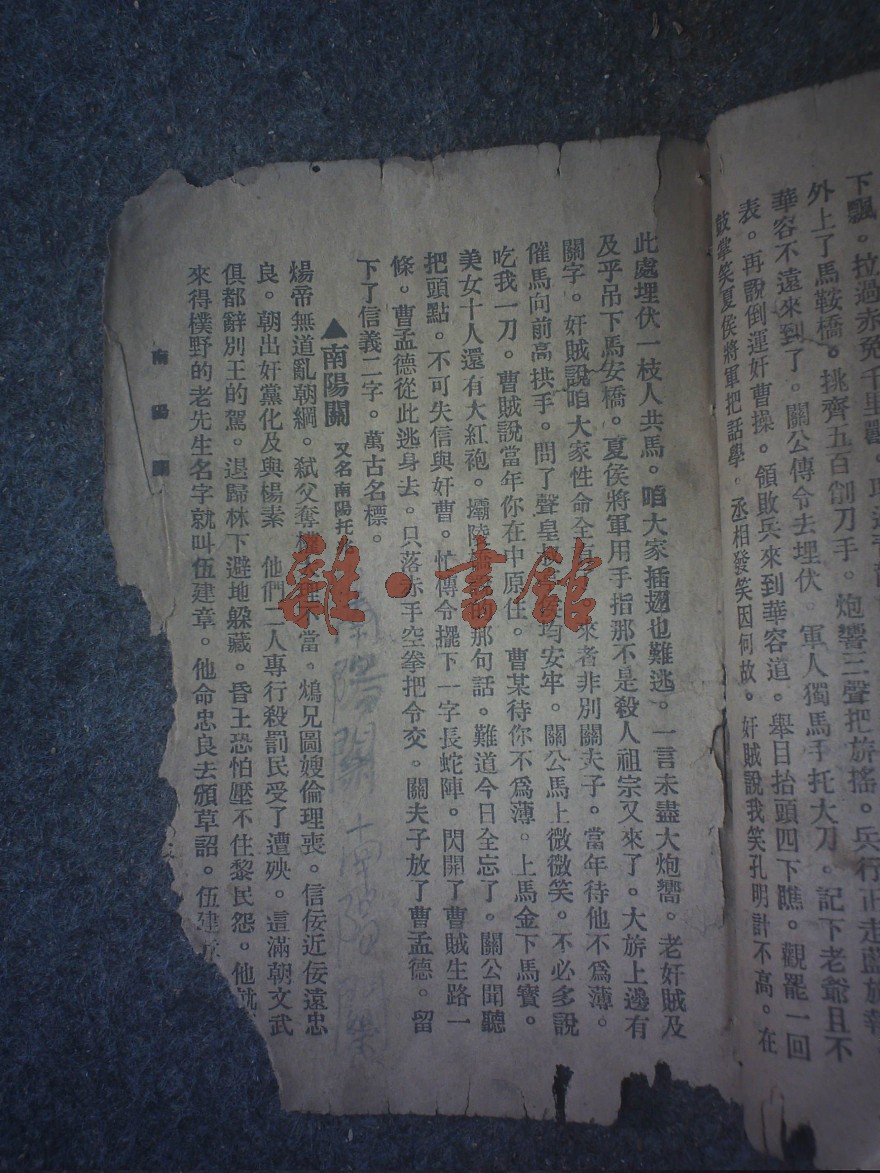 下飄。拉過赤兔千里
外上了馬鞍橋。挑齊五百削刀手。炮響三聲把旂搖。兵行正走藍旂報
華容不遠來到了。關公傳令去埋伏。軍人獨馬手托大刀。記下老爺且不
表。再說倒運奸曹操。領敗兵來到華容道。舉目抬頭四下瞧。觀罷一回
鼓掌笑夏侯將軍把話學。丞相發笑因何故。奸賊說我笑孔明計不高。在
此處埋伏一枝人共馬。咱大家插翅也難逃。一言未盡大炮嚮。老奸賊及
及乎吊下馬安橋。夏侯將軍用手指那不是殺人祖宗又來了。大旂上邊有
關字。奸賊說咱大家性命全 來者非別關夫子。當年待他不爲薄。
催馬向前高拱手。問了聲皇 均安牢。關公馬上微微笑。不必多說
吃我一刀。曹賊說當年你在中原住。曹某待你不爲薄。上馬金下馬寶。
美女十人還有大紅袍。壩陵 那句話。難道今日全忘了。關公聞聽
把頭點。不可失信與奸曹。忙傳令擺下一字長蛇陣。閃開了曹賊生路一
條。曹孟德從此逃身去。只落赤手空拳把令交。關夫子放了曹孟德。留
下了信義二字。萬古名標。
▲南陽關 又名南陽托
煬帝無道亂朝綱。弑父奪 不當。鴆兄圖嫂倫理喪。信佞近佞遠忠
良。朝出奸黨化及與楊素 他們二人專行殺罰民受了遭殃。這滿朝文武
俱都辭別王的駕。退歸林下避地躲藏。昏王恐怕壓不住黎民怨。他就
來得樸野的老先生名字就叫伍建章。他命忠良去頒草詔。伍建章
南陽關
南陽關
雜·書館